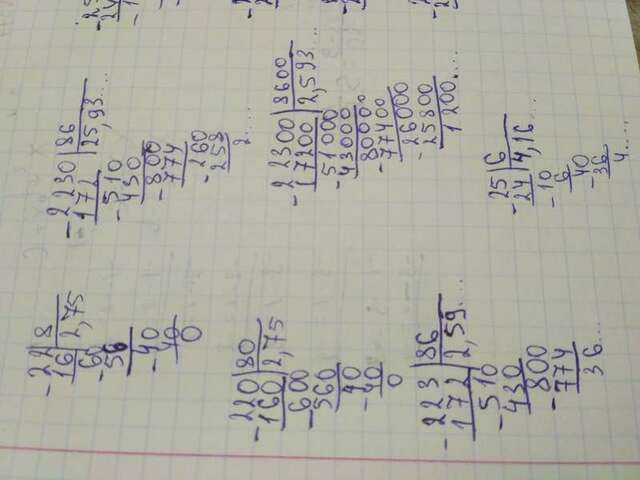 -22|8
16|2,75
-60
56
-40
40
0
-220|80
160|2,75
-600
560
-40
40
0
-223|86
172|2,59....
-510
430
-800
774
36....
-2230|86
172|25,93....
-510
430
-800
774
-260
258
2....
-22300|8600
17200|2,593....
-51000
43000
-80000
77400
-26000
25800
1200....
-25|6
24|4,16....
-10
6
-40
36
4....